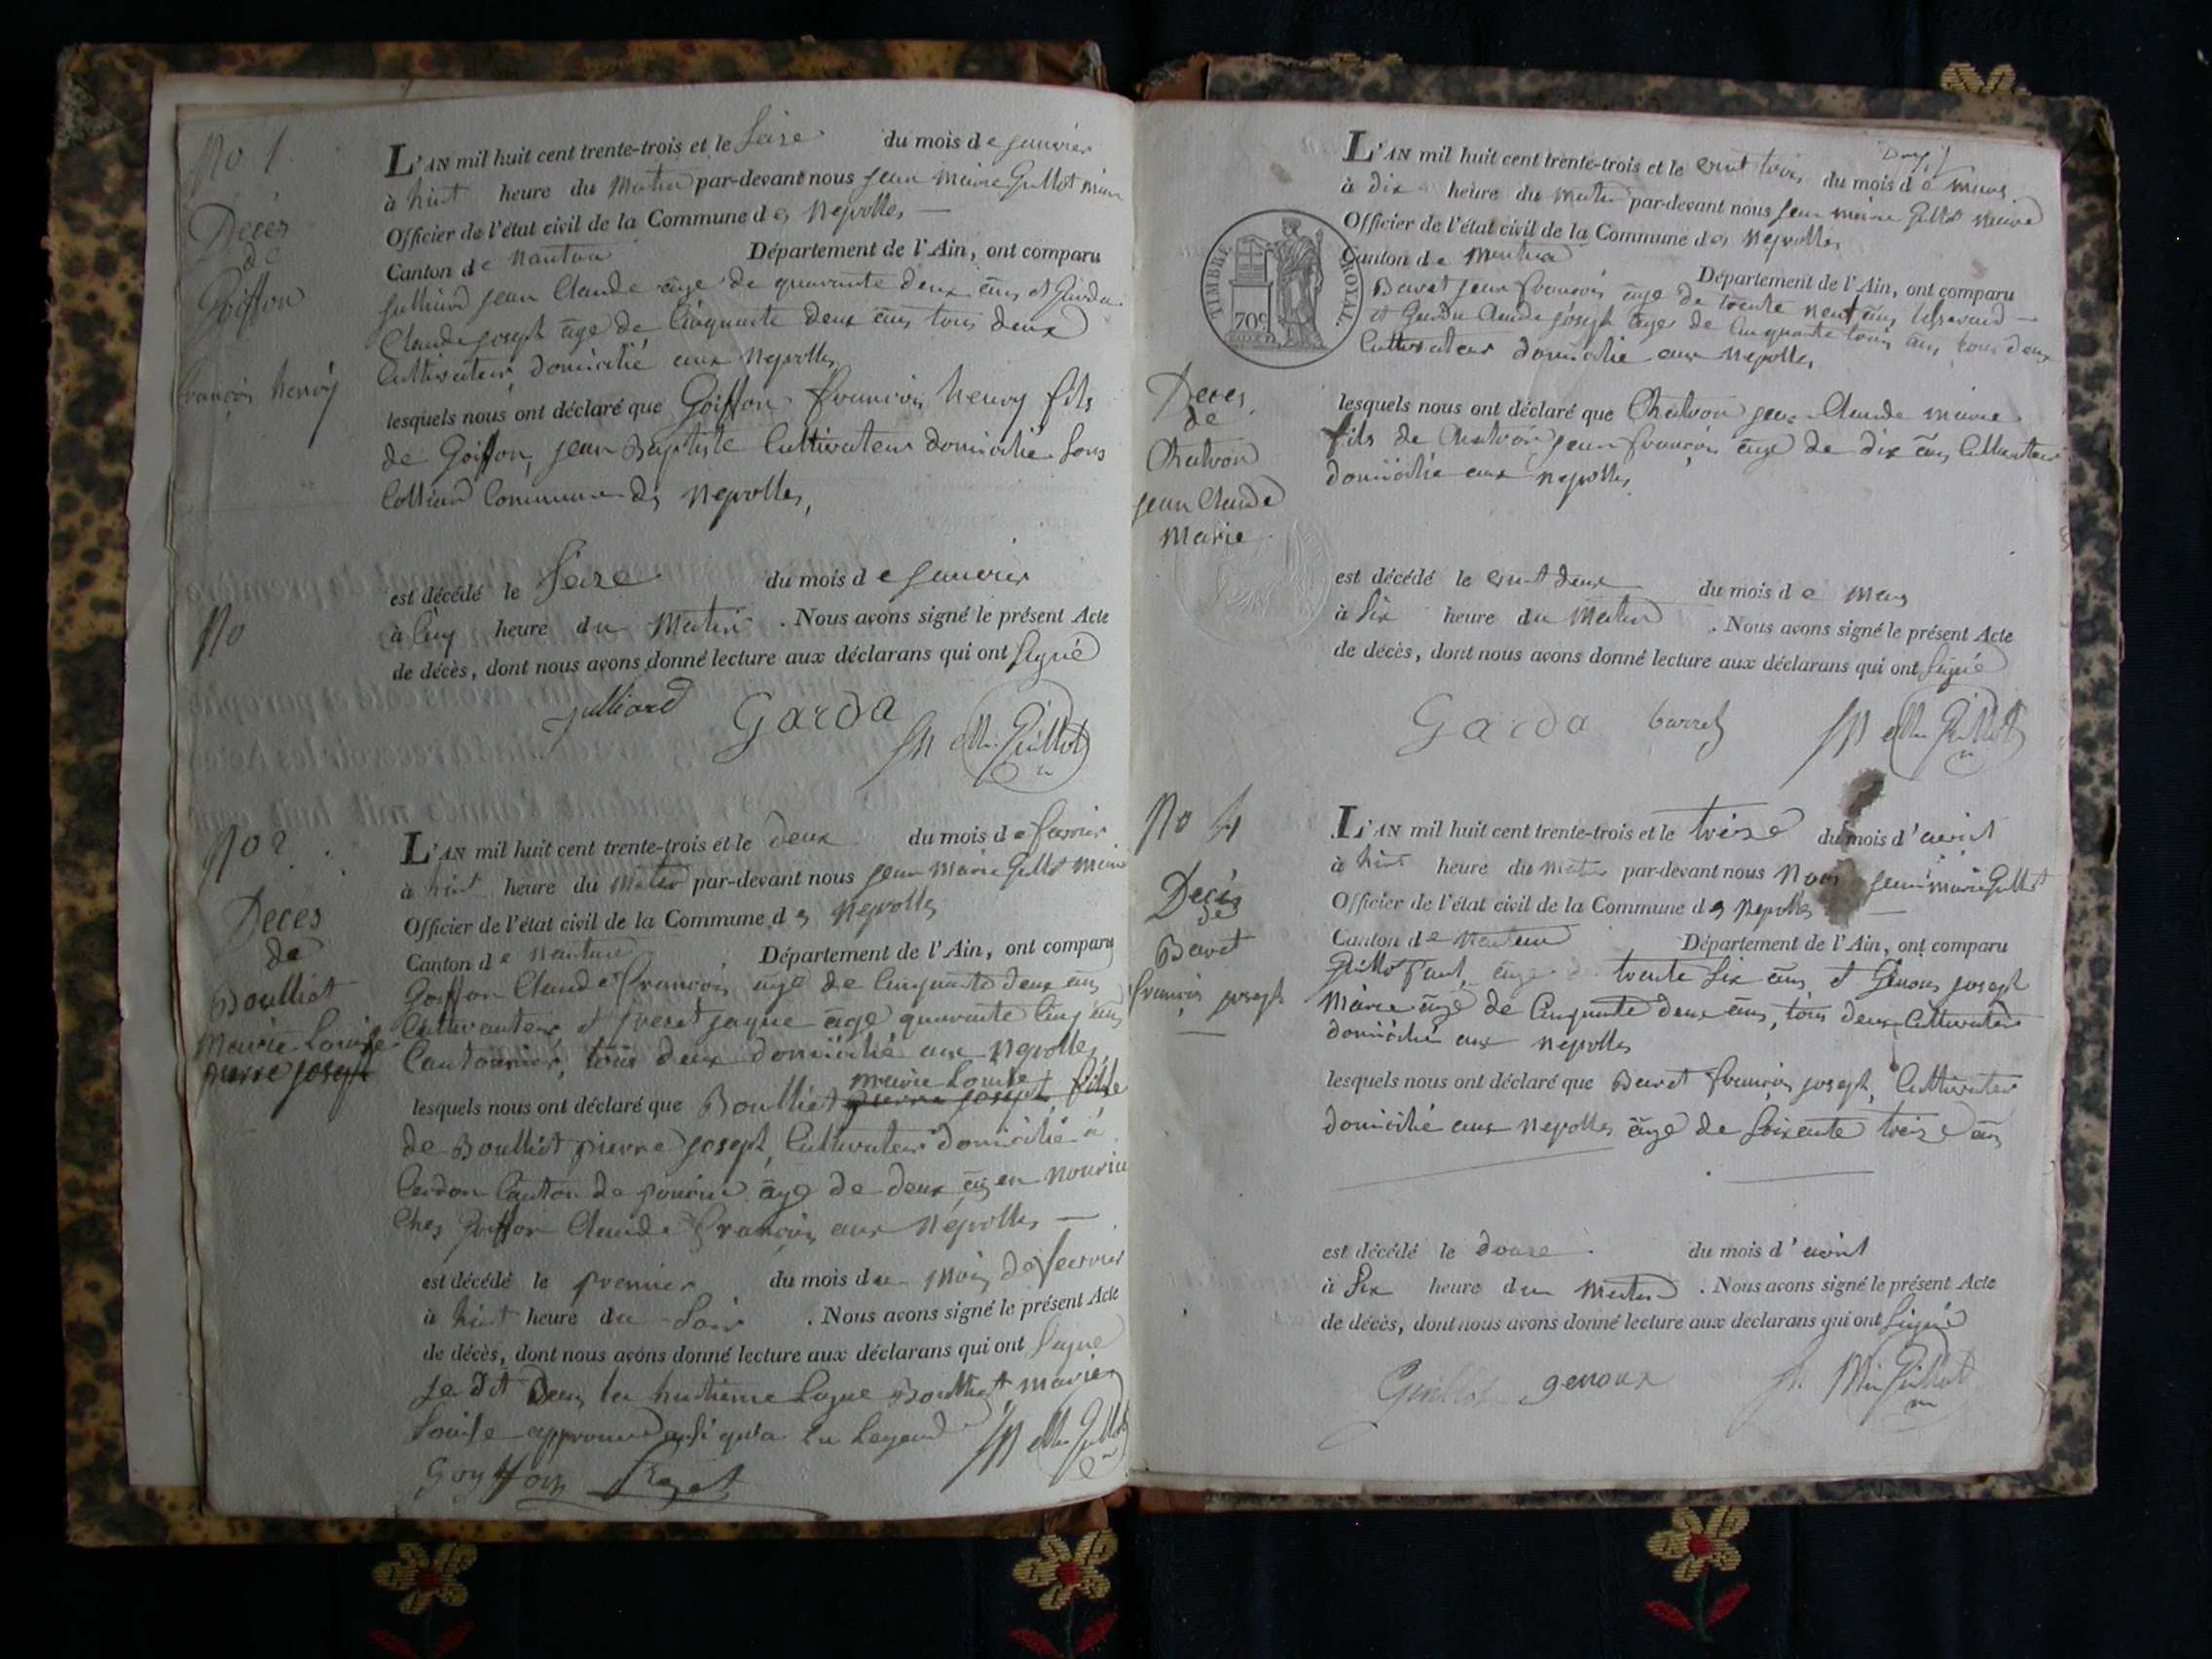 No 1
Décès
de
Goiffon
françois henry
L'AN mil huit cent trente-trois et le Seize du mois de janvier
à huit heure du Matin par-devant nous jean marie Guillot maire
Officier de l'état civil de la Commune des Neyrolles
Canton de Nantua Département de l'Ain, ont comparu
julliard jean Claude âge de quarante deux ans et Garda
Claude joseph âge de Cinquante deux ans tous deux
Cultivateur domicilié aux Neyrolles
lesquels nous ont déclaré que Goiffon françois henry fils
de Goiffon, jean Baptiste Cultivateur domicilié Sous
Colliard Commune des Neyrolles,
est décédé le Seize du mois de janvier
No
à Cinq heure du Matin . Nous avons signé le présent Acte
de décès, dont nous avons donné lecture aux déclarans qui ont Signé
julliard Garda Jn Mie Guillot
No 2
Deces
de
Boulliet
Marie Louise
pierre joseph
L'AN mil huit cent trente-trois et le deux du mois de fevrier
à huit heure du Matin par-devant nous jean Marie Guillot maire
Officier de l'état civil de la Commune des Neyrolles
Canton de Nantua Département de l'Ain, ont comparu
Goiffon Claude françois âge de Cinquante deux ans
Cultivateur et jaque âge quarante Cinq ans
Cantonnier, tous deux domicilié aux Neyrolles
marie Louise
lesquels nous ont déclaré que Boulliet pierre joseph fille
de Boulliet pierre joseph, Cultivateur domicilié à
Cerdon Canton de poncin âge de deux ans en nourice
Chez Goiffon Claude François aux Neyrolles
est décédé le premier du mois du Mois de fevrier
à huit heure du Soir . Nous avons signé le présent Acte
de décès, dont nous avons donné lecture aux déclarans qui ont Signe
je dit Dans la huitième Ligne Boulliet, marie
Louise approuvé
Goyffon Jn Mie Guillot
L'AN mil huit cent trente-trois et le vint trois du mois de mars
à dix heure du matin par-devant nous jean marie Guillot maire
Officier de l'état civil de la Commune des Neyrolles
Canton de Nantua Département de l'Ain, ont comparu
TIMBRE ROYAL.
70c
Baret jean françois âge de trente neuf ans
et Garda Claude joseph âge de Cinquante trois ans, tous deux
Cultivateur domicilié aux Neyrolles
Deces
de
Chatron
jean Claude
Marie
lesquels nous ont déclaré que Chatron jean Claude marie
fils de Chatron jean françois âge de dix ans Cultivateur
domicilié aux neyrolles
est décédé le vint deux du mois de Mars
à Six heure du Matin . Nous avons signé le présent Acte
de décès, dont nous avons donné lecture aux déclarans qui ont Signé
Garda barret Jn Mie Guillot
No 4
Décès
de
Baret
françois joseph
L'AN mil huit cent trente-trois et le treize du mois d'avril
à huit heure du matin par-devant nous Nous jean marie Guillot
Officier de l'état civil de la Commune des Neyrolles
Canton de Nantua Département de l'Ain, ont comparu
Guillot Paul, âge de trente Six ans et Genoux joseph
Marie âge de Cinquante deux ans, tous deux Cultivateur
domicilié aux neyrolles
lesquels nous ont déclaré que Baret françois joseph, Cultivateur
domicilié aux Neyrolles âge de Soixante treize ans
est décédé le douze du mois d'avril
à Six heure du matin . Nous avons signé le présent Acte
de décès, dont nous avons donné lecture aux déclarans qui ont Signé
Guillot genoux Jn Mie Guillot